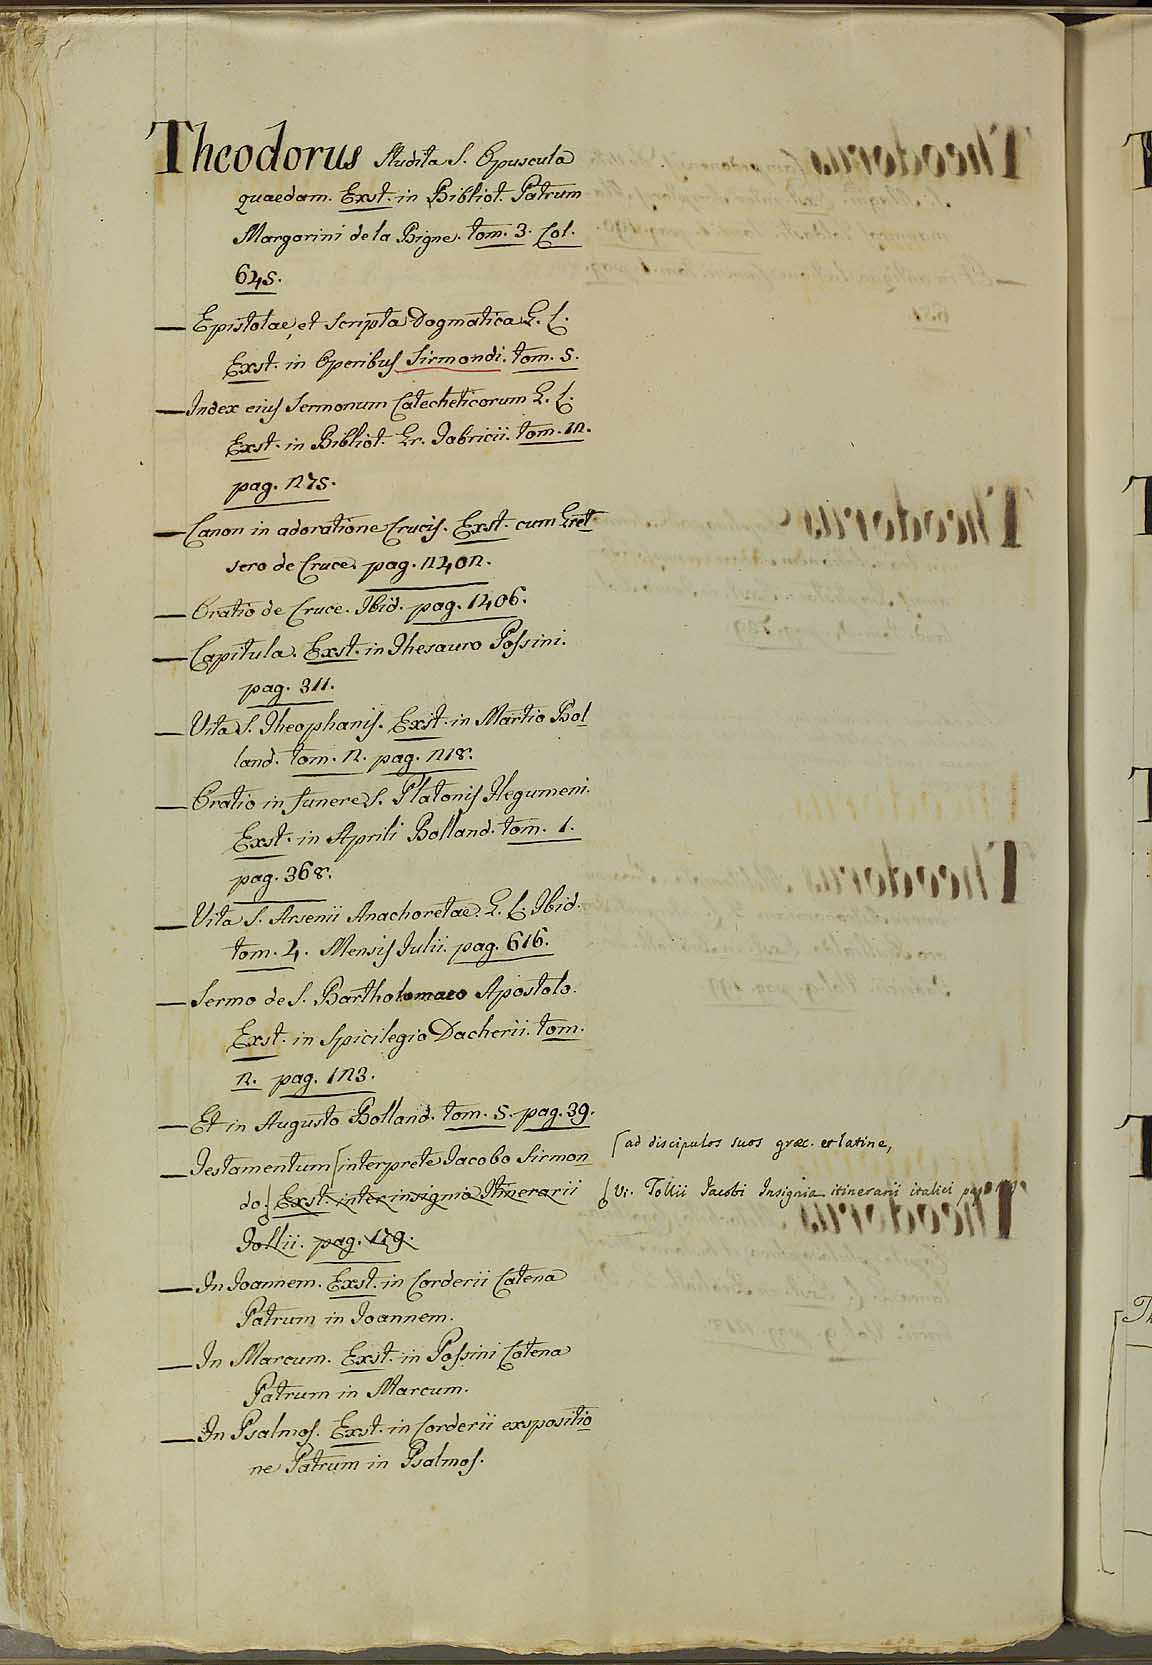 Theodorus Studita S. Opuscula
quaedam. Exst. in Bibliot. Patrum
Margarini de la Bigne. tom. 3. Col.
645.
— Epistolae, et Scripta Dogmatica G. L.
Exst. in Operibus Sirmondi. tom. 5.
— Index eius Sermonum Catecheticorum G. L.
Exst. in Bibliot. Gr. Fabricii. tom. 12.
pag. 275.
— Canon in adoratione Crucis. Exst. cum Gret
sero de Cruce. pag. 2402.
— Oratio de Cruce. Ibid. pag. 1406.
— Capitula. Exst. in Thesauro Possini.
pag. 311.
— Vita S. Theophanis. Exst. in Martio Bol
land. tom. 2. pag. 218.
— Oratio in funere S. Platonis Hegumeni.
Exst. in Aprili Bolland. tom. 1.
pag. 368.
— Vita S. Arsenii Anachoretae. G. L. Ibid.
tom. 4. Mensis Julii. pag. 616.
— Sermo de S. Bartholomaeo Apostolo.
Exst. in Spicilegio Dacherii. tom.
2. pag. 123.
— Et in Augusto Bolland. tom. 5. pag. 39.
— Testamentum [interprete Jacobo Sirmon
[ad discipulos suos graec. et latine,
do] Exst. inter insignia Itinerarii
Vi. Tollii Jacobi Insignia itinerarii italici pag.
Tollii. pag. 179.
— In Joannem. Exst. in Corderii Catena
Patrum in Joannem.
— In Marcum. Exst. in Possini Catena
Patrum in Marcum.
— In Psalmos. Exst. in Corderii exspositio
ne Patrum in Psalmos.